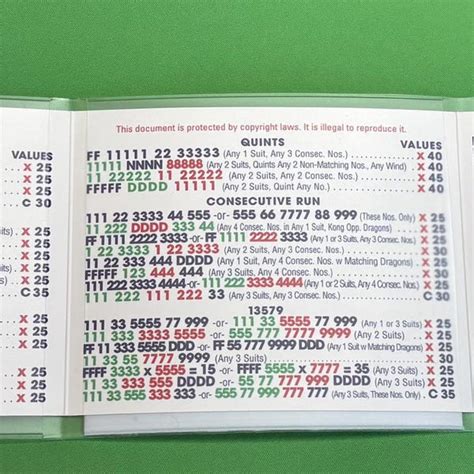 VALUES
X 25
X 25
X 25
C 30
X 25
X 25
X 25
X 25
C 35
X 25
X 25
X 25
X 25
X 25
This document is protected by copyright laws. It is illegal to reproduce it.
QUINTS VALUES
FF 11111 22 33333 (Any 1 Suit, Any 3 Consec. Nos.) X 40
11111 NNNN 88888 (Any 2 Suits, Quints Any 2 Non-Matching Nos., Any Wind) X 40
11 22222 11 22222 (Any 2 Suits, Any 2 Consec. Nos.) X 45
FFFFF DDDD 11111 (Any 2 Suits, Quint Any No.) X 45
CONSECUTIVE RUN
111 22 3333 44 555 -or- 555 66 7777 88 999 (These Nos. Only) X 25
111 222 DDDD 333 44 (Any 4 Consec. Nos. in Any 1 Suit, Kong Opp. Dragons) X 25
FF 1111 2222 3333 -or- FF 1111 2222 3333 (Any 1 or 3 Suits, Any 3 Consec. Nos.) X 25
1 22 3333 1 22 3333 (Any 2 Suits, Any 3 Consec. Nos.) X 30
11 22 333 444 DDDD (Any 1 Suit, Any 4 Consec. Nos. w Matching Dragons) X 25
FFFFF 123 444 444 (Any 3 Suits, Any 4 Consec. Nos.) X 30
111 222 3333 4444 -or- 111 222 3333 4444 (Any 1 or 2 Suits, Any 4 Consec. Nos.) X 25
111 222 111 222 33 (Any 3 Suits, Any 3 Consec. Nos.) C 30
13579
111 33 5555 77 999 -or- 111 33 5555 77 999 (Any 1 or 3 Suits) X 25
111 333 3333 5555 -or- 555 777 7777 9999 (Any 2 Suits) X 25
FF 11 333 5555 DDD -or- FF 55 777 9999 DDD (Any 1 Suit w Matching Dragons) X 25
11 33 55 7777 9999 (Any 3 Suits) X 30
FFFF 3333 x 5555 = 15 -or- FFFF 5555 x 7777 = 35 (Any 3 Suits) X 25
11 33 333 555 DDDD -or- 55 77 777 999 DDDD (Any 3 Suits) X 25
111 33 555 333 333 -or- 555 77 999 777 777 (Any 3 Suits, These Nos. Only) C 35